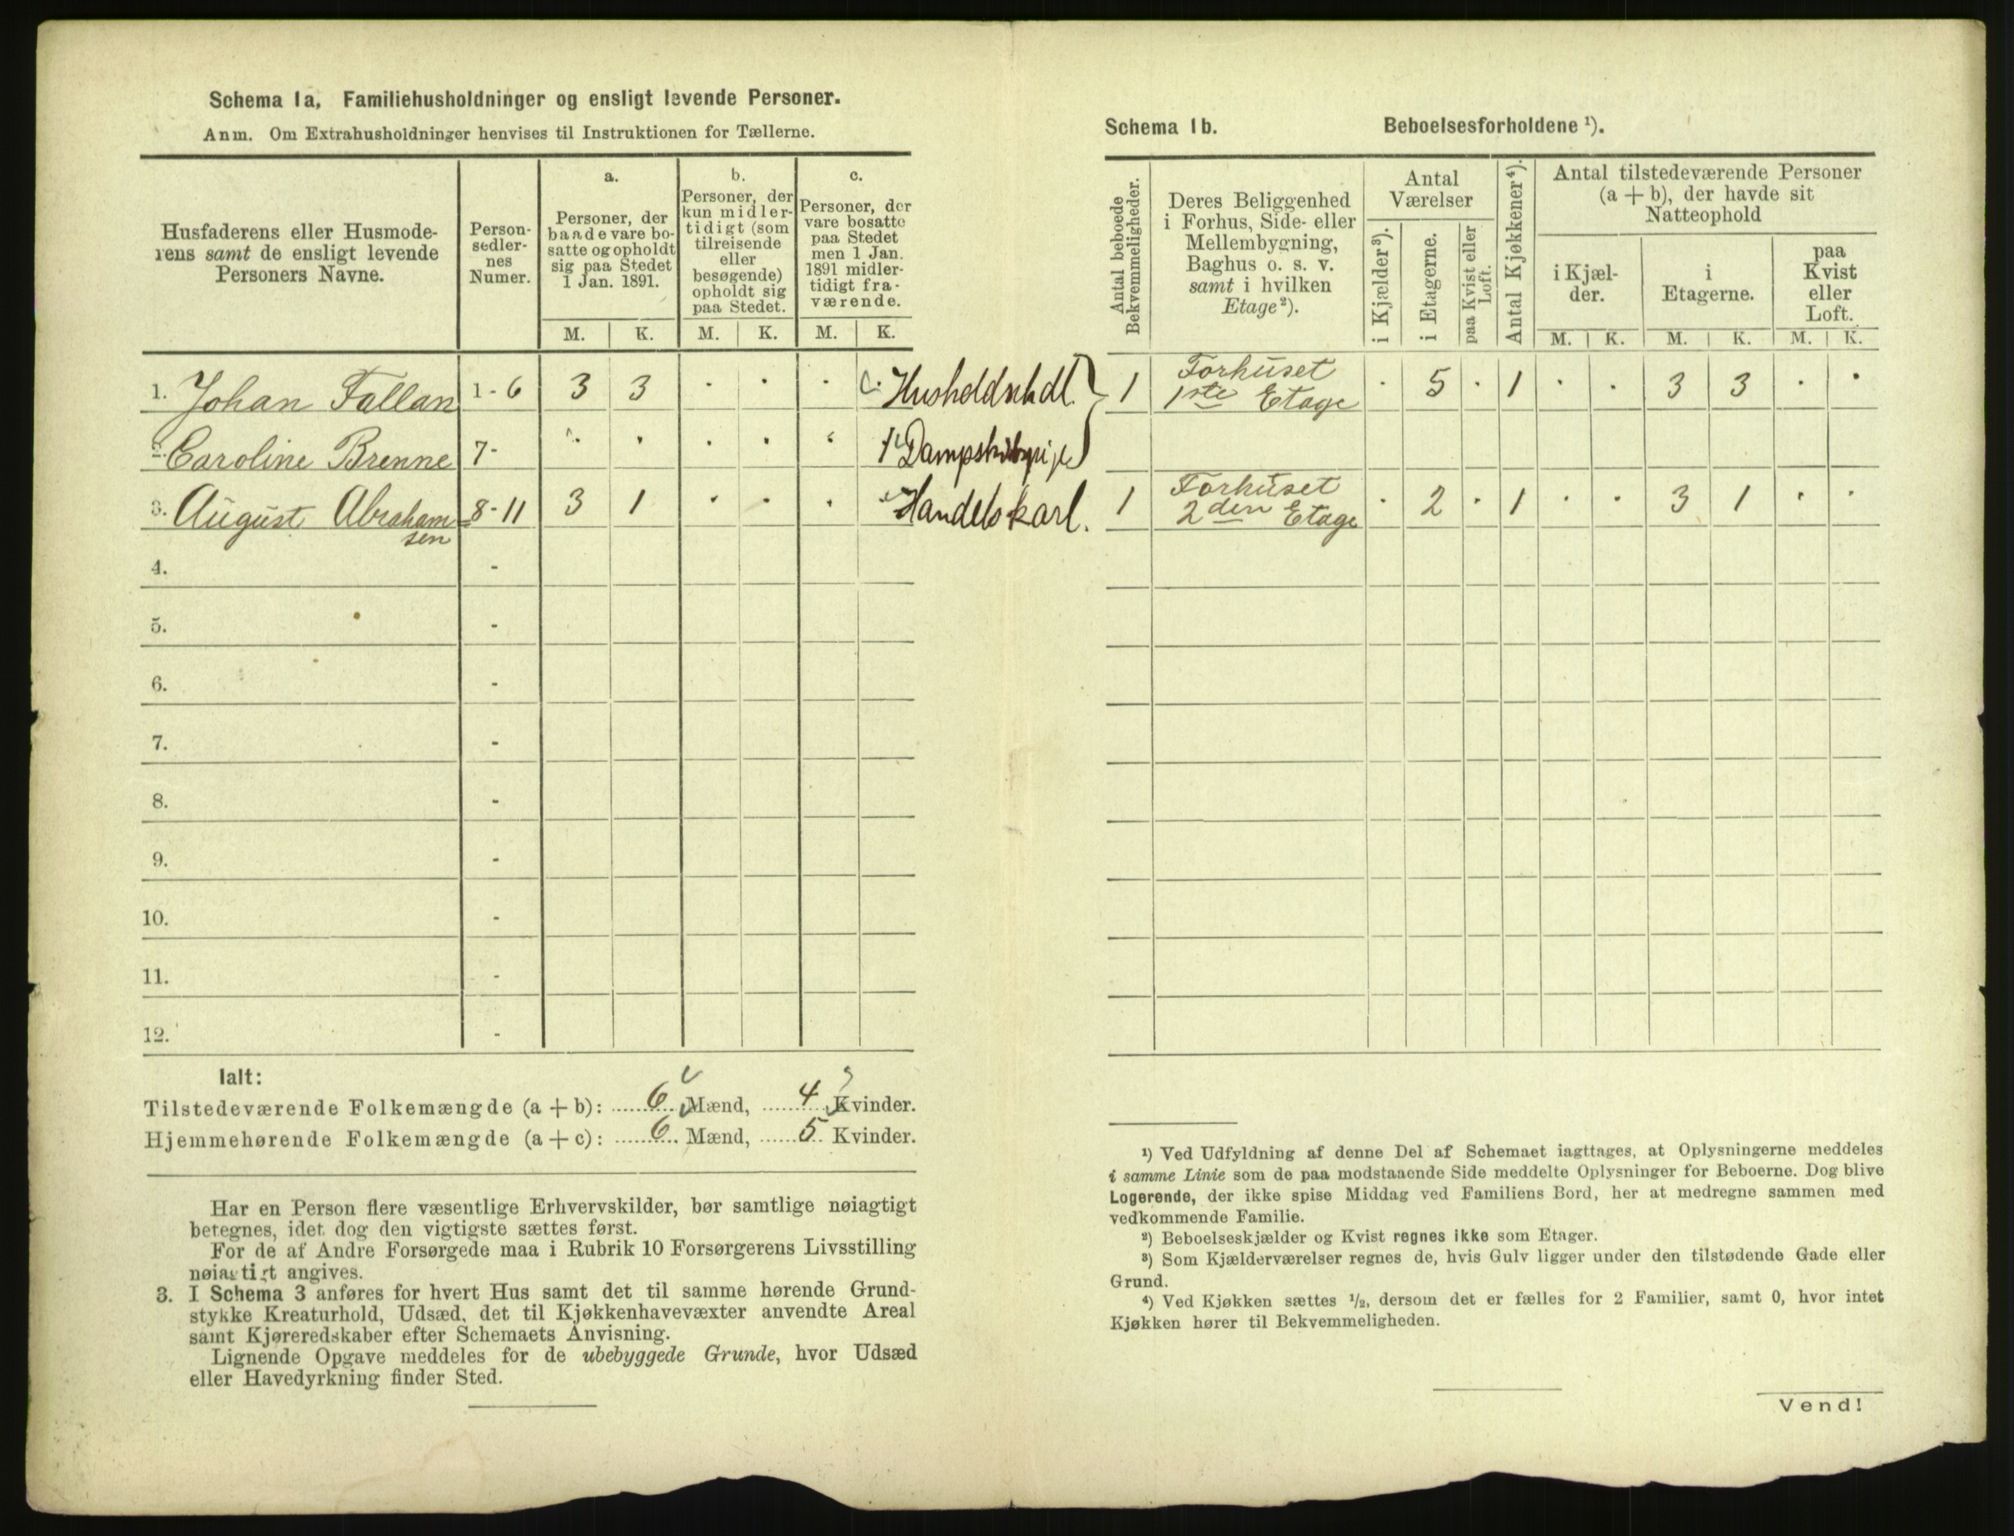 Schema 1a. Familiehusholdninger og ensligt levende Personer.
Anm. Om Extrahusholdninger henvises til Instruktionen for Tællerne.
Husfaderens eller Husmode-
rens samt de ensligt levende
Personers Navne.
Person-
sedler-
nes
Numer.
a.
Personer, der
baade vare bo-
satte og opholdt
sig paa Stedet
1 Jan. 1891.
b.
Personer, der
kun midler-
tidigt (som
tilreisende
eller
besøgende)
opholdt sig
paa Stedet.
c.
Personer, der
vare bosatte
paa Stedet
men 1 Jan.
1891 midler-
tidigt fra-
værende.
M. K. M. K. M. K.
1. Johan Fallan 1 - 6 3 3 . . . Husholdnhdl.
2. Caroline Brenne 7 - . . . . . 1
3. August Abraham 8 - 11 3 1 . . . Handelskarl.
sen
4. -
5. -
6. -
7. -
8. -
9. -
10. -
11. -
12. -
Ialt:
Tilstedeværende Folkemængde (a + b): 6 Mænd, 4 Kvinder.
Hjemmehørende Folkemængde (a + c): 6 Mænd, 5 Kvinder.
Har en Person flere væsentlige Erhvervskilder, bør samtlige nøiagtigt
betegnes, idet dog den vigtigste sættes først.
For de af Andre Forsørgede maa i Rubrik 10 Forsørgerens Livsstilling
nøiagtigt angives.
3. I Schema 3 anføres for hvert Hus samt det til samme hørende Grund-
stykke Kreaturhold, Udsæd, det til Kjøkkenhavevæxter anvendte Areal
samt Kjøreredskaber efter Schemaets Anvisning.
Lignende Opgave meddeles for de ubebyggede Grunde, hvor Udsæd
eller Havedyrkning finder Sted.
Schema 1b. Beboelsesforholdene ¹).
Antal beboede
Bekvemmeligheder.
Deres Beliggenhed
i Forhus, Side- eller
Mellembygning,
Baghus o. s. v.
samt i hvilken
Etage²).
Antal
Værelser
i Kjælder³).
i Etagerne.
paa Kvist eller
Loft.
Antal Kjøkkener⁴).
Antal tilstedeværende Personer
(a + b), der havde sit
Natteophold
i Kjæl-
der.
i
Etagerne.
paa
Kvist
eller
Loft.
M. K. M. K. M. K.
1 Forhuset . 5 . 1 . . 3 3 . .
1ste Etage
1 Forhuset . 2 . 1 . . 3 1 . .
2den Etage
¹) Ved Udfyldning af denne Del af Schemaet iagttages, at Oplysningerne meddeles
i samme Linie som de paa modstaaende Side meddelte Oplysninger for Beboerne. Dog blive
Logerende, der ikke spise Middag ved Familiens Bord, her at medregne sammen med
vedkommende Familie.
²) Beboelseskjælder og Kvist regnes ikke som Etager.
³) Som Kjælderværelser regnes de, hvis Gulv ligger under den tilstødende Gade eller
Grund.
⁴) Ved Kjøkken sættes ½, dersom det er fælles for 2 Familier, samt 0, hvor intet
Kjøkken hører til Bekvemmeligheden.
Vend!